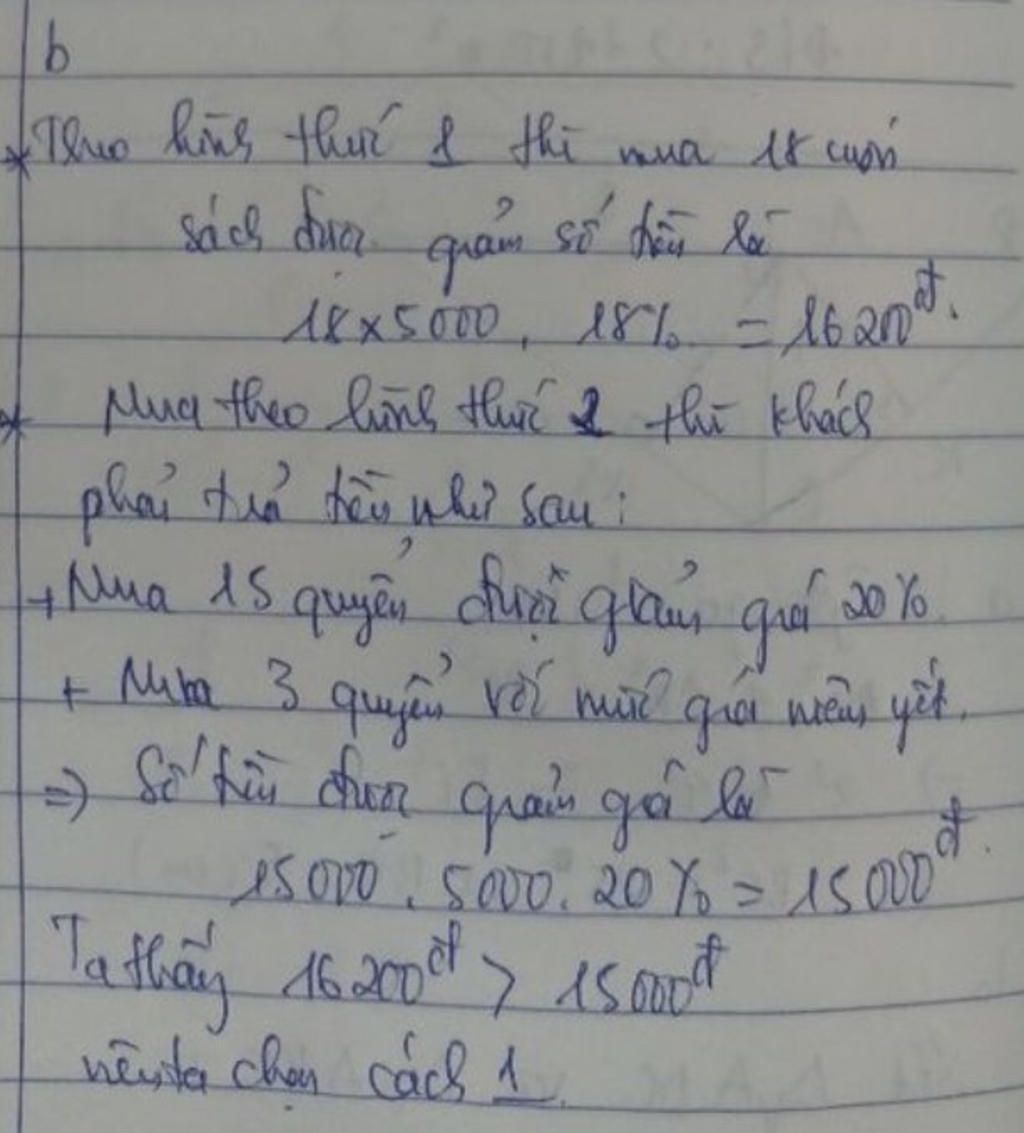 b
* Theo hình thức 1 thì mua 18 cuốn
sách được giảm số tiền là
18 x 5000 . 18% = 16 200đ.
* Mua theo hình thức 2 thì khách
phải trả tiền như sau:
+ Mua 15 quyển được giảm giá 20%
+ Mua 3 quyển với mức giá niêm yết.
=> Số tiền được giảm giá là
15000 . 5000 . 20% = 15 000đ.
Ta thấy 16 200đ > 15 000đ
nên ta chọn cách 1.